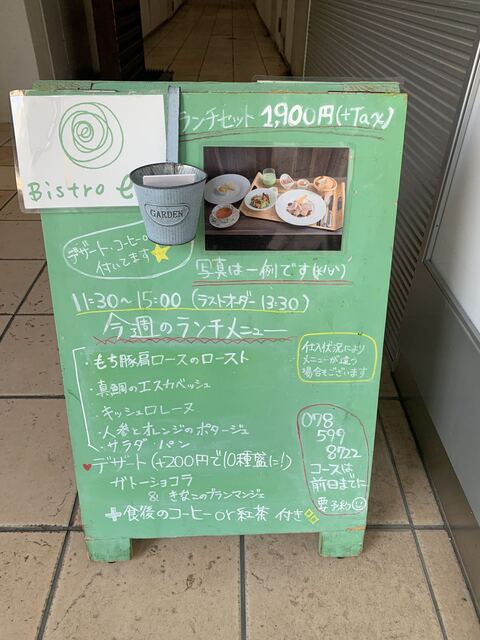 ランチセット 1,900円(+Tax)
Bistro e
GARDEN
デザート、コーヒー
付いてます
写真は一例です
11:30～15:00 (ラストオーダー 13:30)
今週のランチメニュー
仕入状況により
メニューが違う
場合もございます
・もち豚肩ロースのロースト
・真鯛のエスカベッシュ
・キッシュロレーヌ
・人参とオレンジのポタージュ
・サラダ・パン
♥デザート(+200円で10種盛に!)
ガトーショコラ
& きなこのブランマンジェ
+食後のコーヒーor紅茶 付き
078
599
8722
コースは
前日までに
要予約